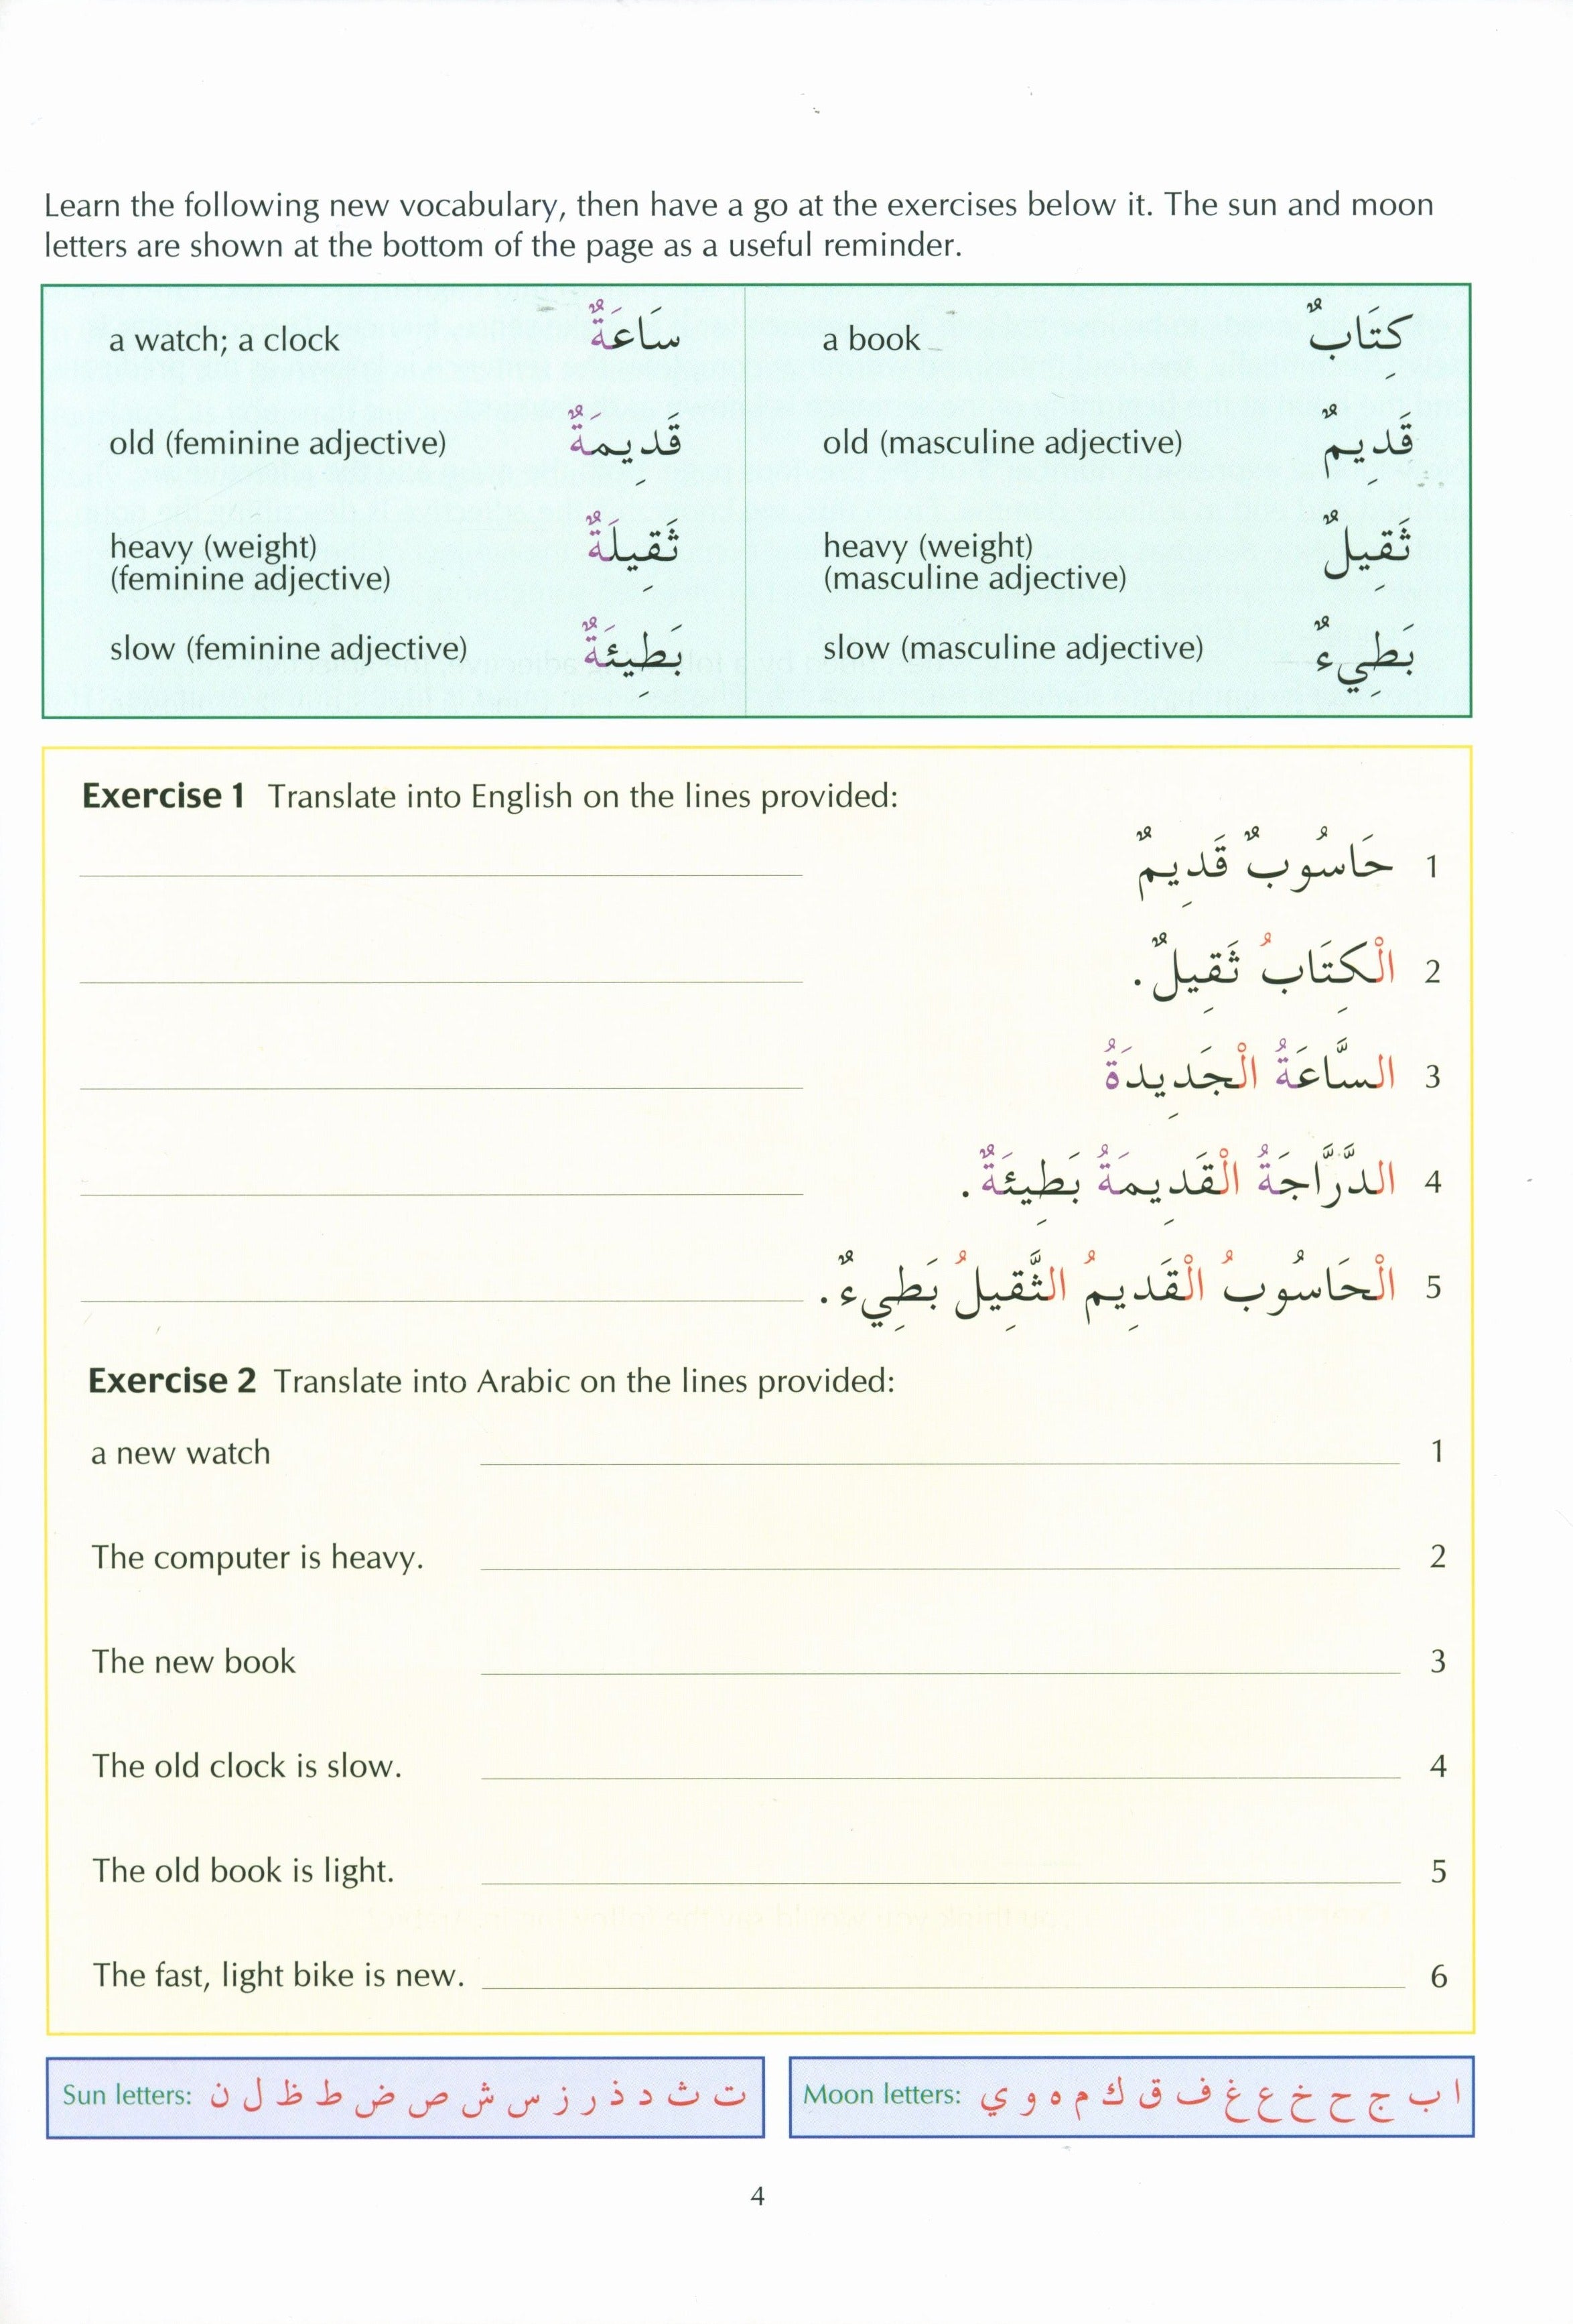 Learn the following new vocabulary, then have a go at the exercises below it. The sun and moon
letters are shown at the bottom of the page as a useful reminder.
a watch; a clock سَاعَةٌ a book كِتَابٌ
old (feminine adjective) قَدِيمَةٌ old (masculine adjective) قَدِيمٌ
heavy (weight) ثَقِيلَةٌ heavy (weight) ثَقِيلٌ
(feminine adjective) (masculine adjective)
slow (feminine adjective) بَطِيئَةٌ slow (masculine adjective) بَطِيءٌ
Exercise 1 Translate into English on the lines provided:
1 حَاسُوبٌ قَدِيمٌ
2 الْكِتَابُ ثَقِيلٌ.
3 السَّاعَةُ الْجَدِيدَةُ
4 الدَّرَّاجَةُ الْقَدِيمَةُ بَطِيئَةٌ.
5 الْحَاسُوبُ الْقَدِيمُ الثَّقِيلُ بَطِيءٌ.
Exercise 2 Translate into Arabic on the lines provided:
a new watch 1
The computer is heavy. 2
The new book 3
The old clock is slow. 4
The old book is light. 5
The fast, light bike is new. 6
Sun letters: ت ث د ذ ر ز س ش ص ض ط ظ ل ن Moon letters: ا ب ج ح خ ع غ ف ق ك م ه و ي
4